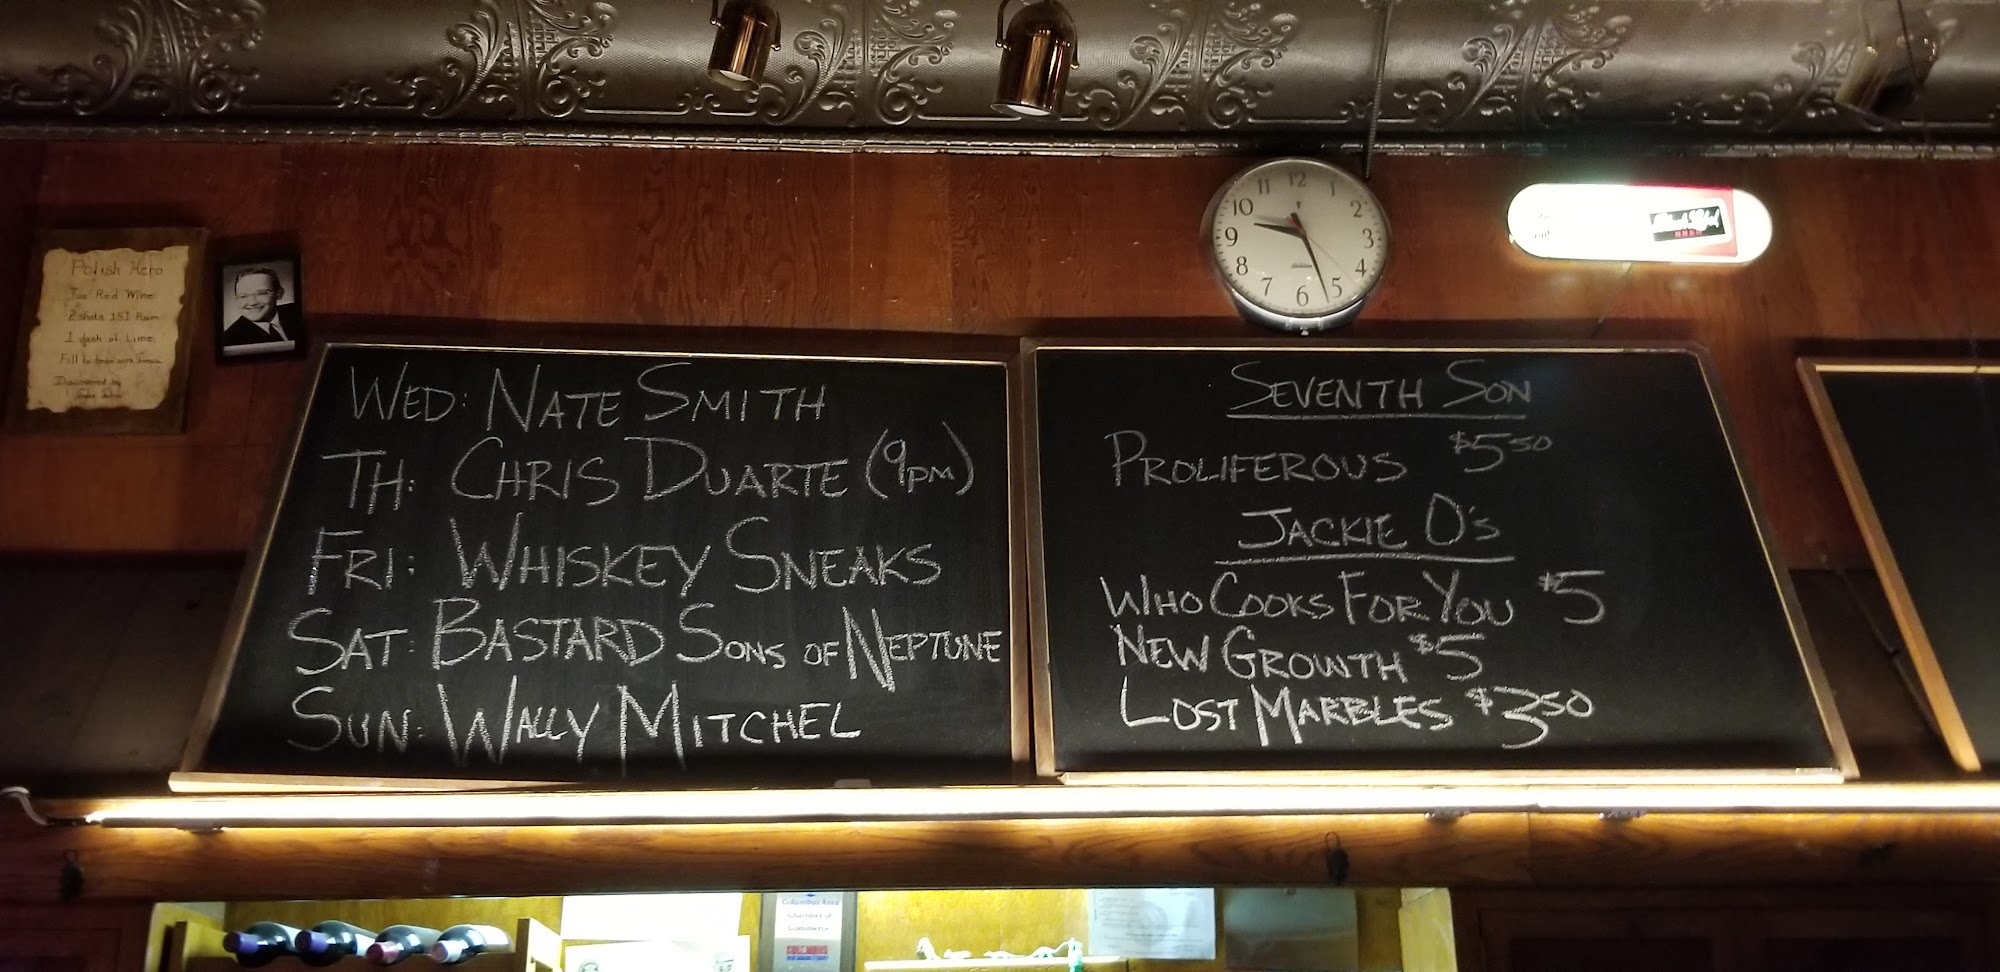 Polish Hero
Red Wine
2 shots 151 Rum
1 dash of Lime
Fill to
Discovered by
12
1
2
3
4
5
6
7
8
9
10
11
WED: NATE SMITH
TH: CHRIS DUARTE (9PM)
FRI: WHISKEY SNEAKS
SAT: BASTARD SONS OF NEPTUNE
SUN: WALLY MITCHEL
SEVENTH SON
PROLIFEROUS $5.50
JACKIE O's
WHO COOKS FOR YOU $5
NEW GROWTH $5
LOST MARBLES $3.50
Columbus Area
Chamber of
Commerce
COLUMBUS